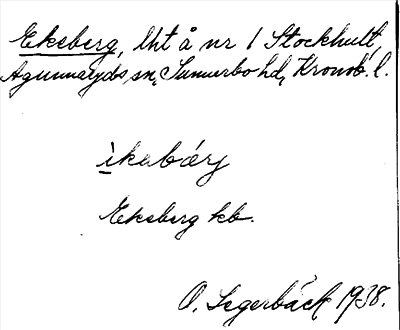 Ekeberg, lht å nr 1 Stockhult,
Agunnaryds sn, Sunnerbo hd, Kronob. l.
ìkabærj
Ekeberg kb.
O. Segerbäck 1938.